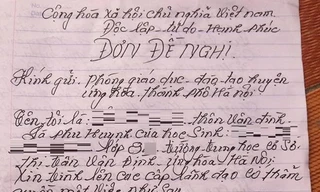 Cộng hòa xã hội chủ nghĩa Việt nam
Độc lập - tự do - Hạnh phúc
ĐƠN ĐỀ NGHỊ.
Kính gửi: Phòng giáo dục - đào tạo huyện
ứng hòa - thành phố Hà nội
Tên tôi là: thôn Vân đình.
Là phụ Huynh của học Sinh:
lớp 8 trường trung học cơ Sở
thị trấn Vân Đình - ứng hòa - Hà nội
Xin trình lên các cấp lãnh đạo có thẩm
quyền một việc như sau